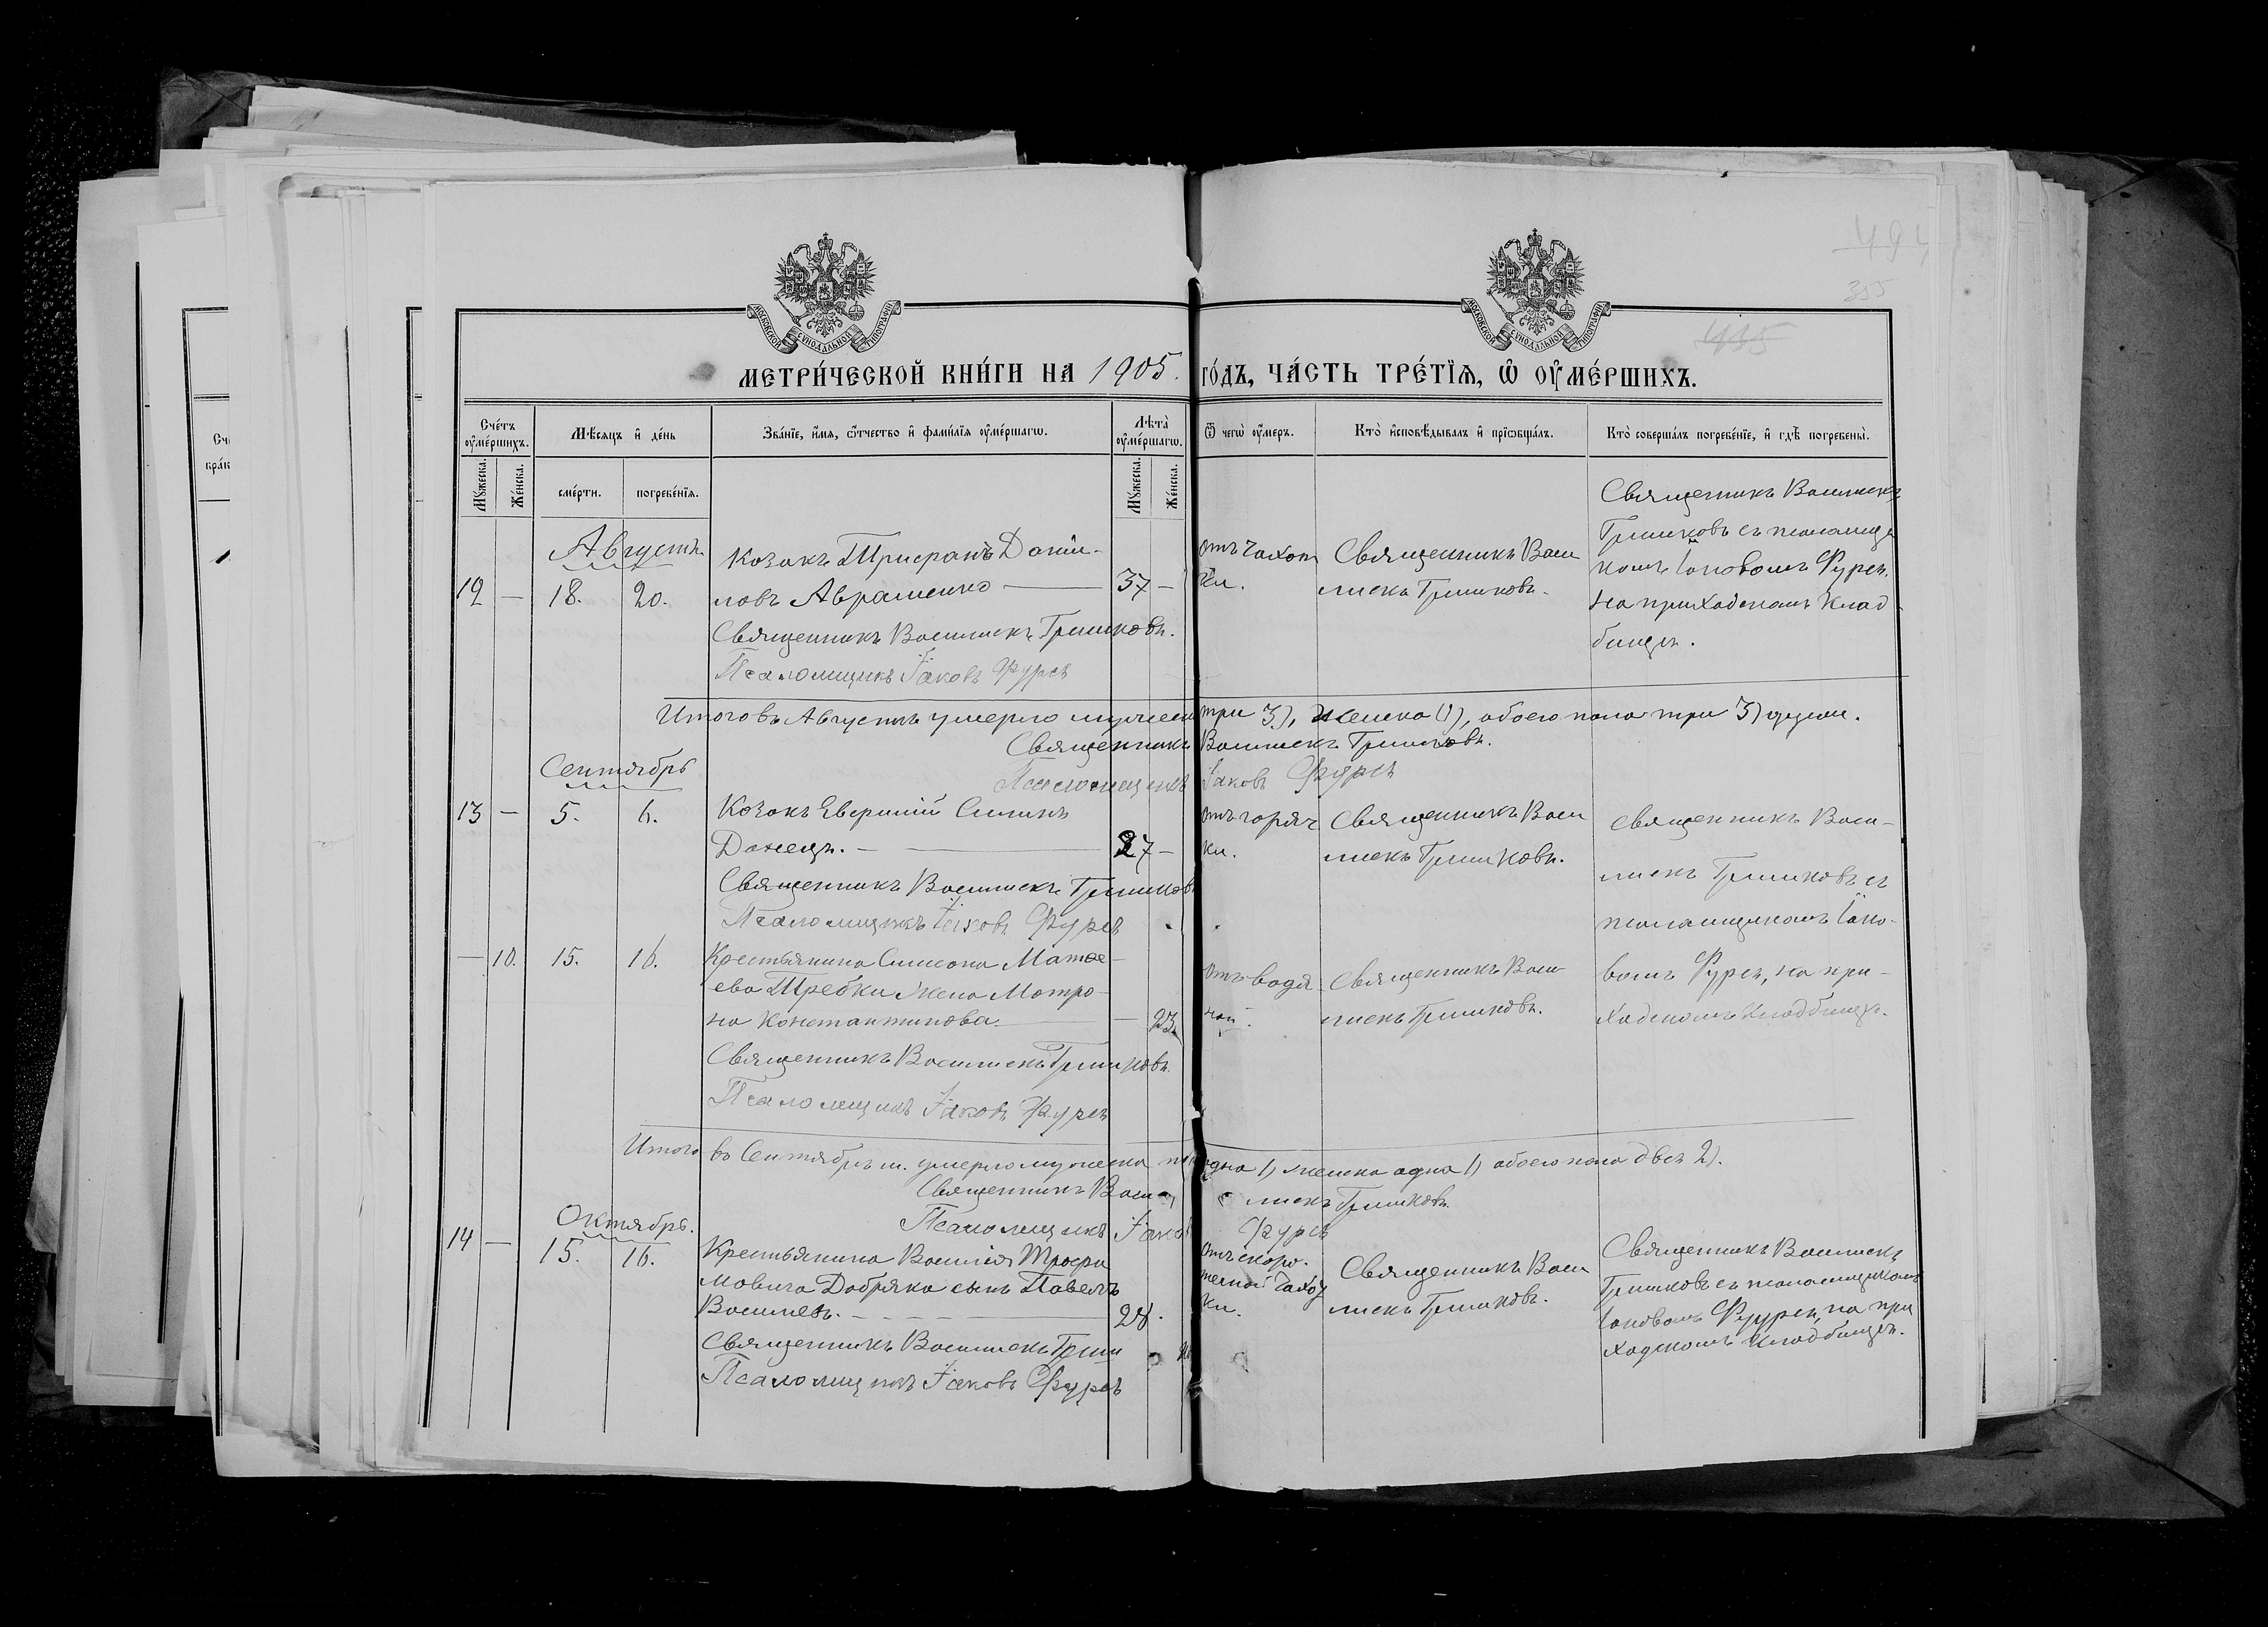 494
355
435
МОСКОВСКОЙ СУНОДАЛЬНОЙ ТИПОГРАФІИ
МОСКОВСКОЙ СУНОДАЛЬНОЙ ТИПОГРАФІИ
МЕТРИ́ЧЕСКОЙ КНИ́ГИ НА 1905. ГО́ДЪ, ЧА́СТЬ ТРЕ́ТЇѦ, Ѡ҆ ОУ҆МЕ́РШИХЪ.
Сче́тъ оу҆ме́ршихъ.
Мѣ́сяцъ и҆ де́нь
Зва́нїе, и҆́мя, ѻ҆́тчество и҆ фами́лїя оу҆ме́ршагѡ.
Лѣ́та оу҆ме́ршагѡ.
Ѿ чегѡ̀ оу҆́меръ.
Кто̀ и҆сповѣ́дывалъ и҆ прїѡбща́лъ.
Кто̀ соверша́лъ погребе́нїе, и҆ гдѣ̀ погребены̀.
Мꙋ́жеска.
Же́нска.
сме́рти.
погребе́нїя.
Мꙋ́жеска.
Же́нска.
Августъ
12 — 18. 20.
Козакъ Трифанъ Дании-
ловъ Авраменко — 37 —
Священникъ Василискъ Гришковъ.
Псаломщикъ Іаковъ Фурсъ
отъ чахот
ки.
Священникъ Васи
лискъ Гришковъ.
Священникъ Василискъ
Гришковъ съ псаломщи
комъ Іаковомъ Фурсъ.
на приходскомъ клад-
бищѣ.
Итого въ Августѣ умерло мужеск три 3), женска (1), обоего пола три 3) души.
Священникъ Василискъ Гришковъ.
Псаломщикъ Іаковъ Фурсъ
Сентябрь
13 — 5. 6.
Козакъ Евфимій Силинъ
Донецъ. — 27 —
Священникъ Василискъ Гришковъ
Псаломщикъ Іаковъ Фурсъ
отъ горяч
ки.
Священникъ Васи
лискъ Гришковъ.
Священникъ Васи-
лискъ Гришковъ съ
псаломщикомъ Іако-
вомъ Фурсъ, на при-
ходскомъ кладбищѣ.
— 10. 15. 16.
Крестьянина Симеона Матѳе-
ева Шребки жена Матро-
на Константинова. — 23
Священникъ Василискъ Гришковъ.
Псаломщикъ Іаковъ Фурсъ
отъ водя
ной.
Священникъ Васи-
лискъ Гришковъ.
Итого въ Сентябрѣ м. умерло мужеска пола одна 1) женска одна 1) обоего пола двѣ 2).
Священникъ Васи- лискъ Гришковъ.
Псаломщикъ Іаковъ Фурсъ
Октябрь.
14 — 15. 16.
Крестьянина Василія Трофи
мовича Добряка сынъ Павелъ
Васильевъ. — 24.
Священникъ Василискъ Гриш
Псаломщикъ Іаковъ Фурсъ
отъ скоро-
течной чахот
ки.
Священникъ Васи
лискъ Гришковъ.
Священникъ Василискъ
Гришковъ съ псаломщикомъ
Іаковомъ Фурсъ, на при
ходскомъ кладбищѣ.